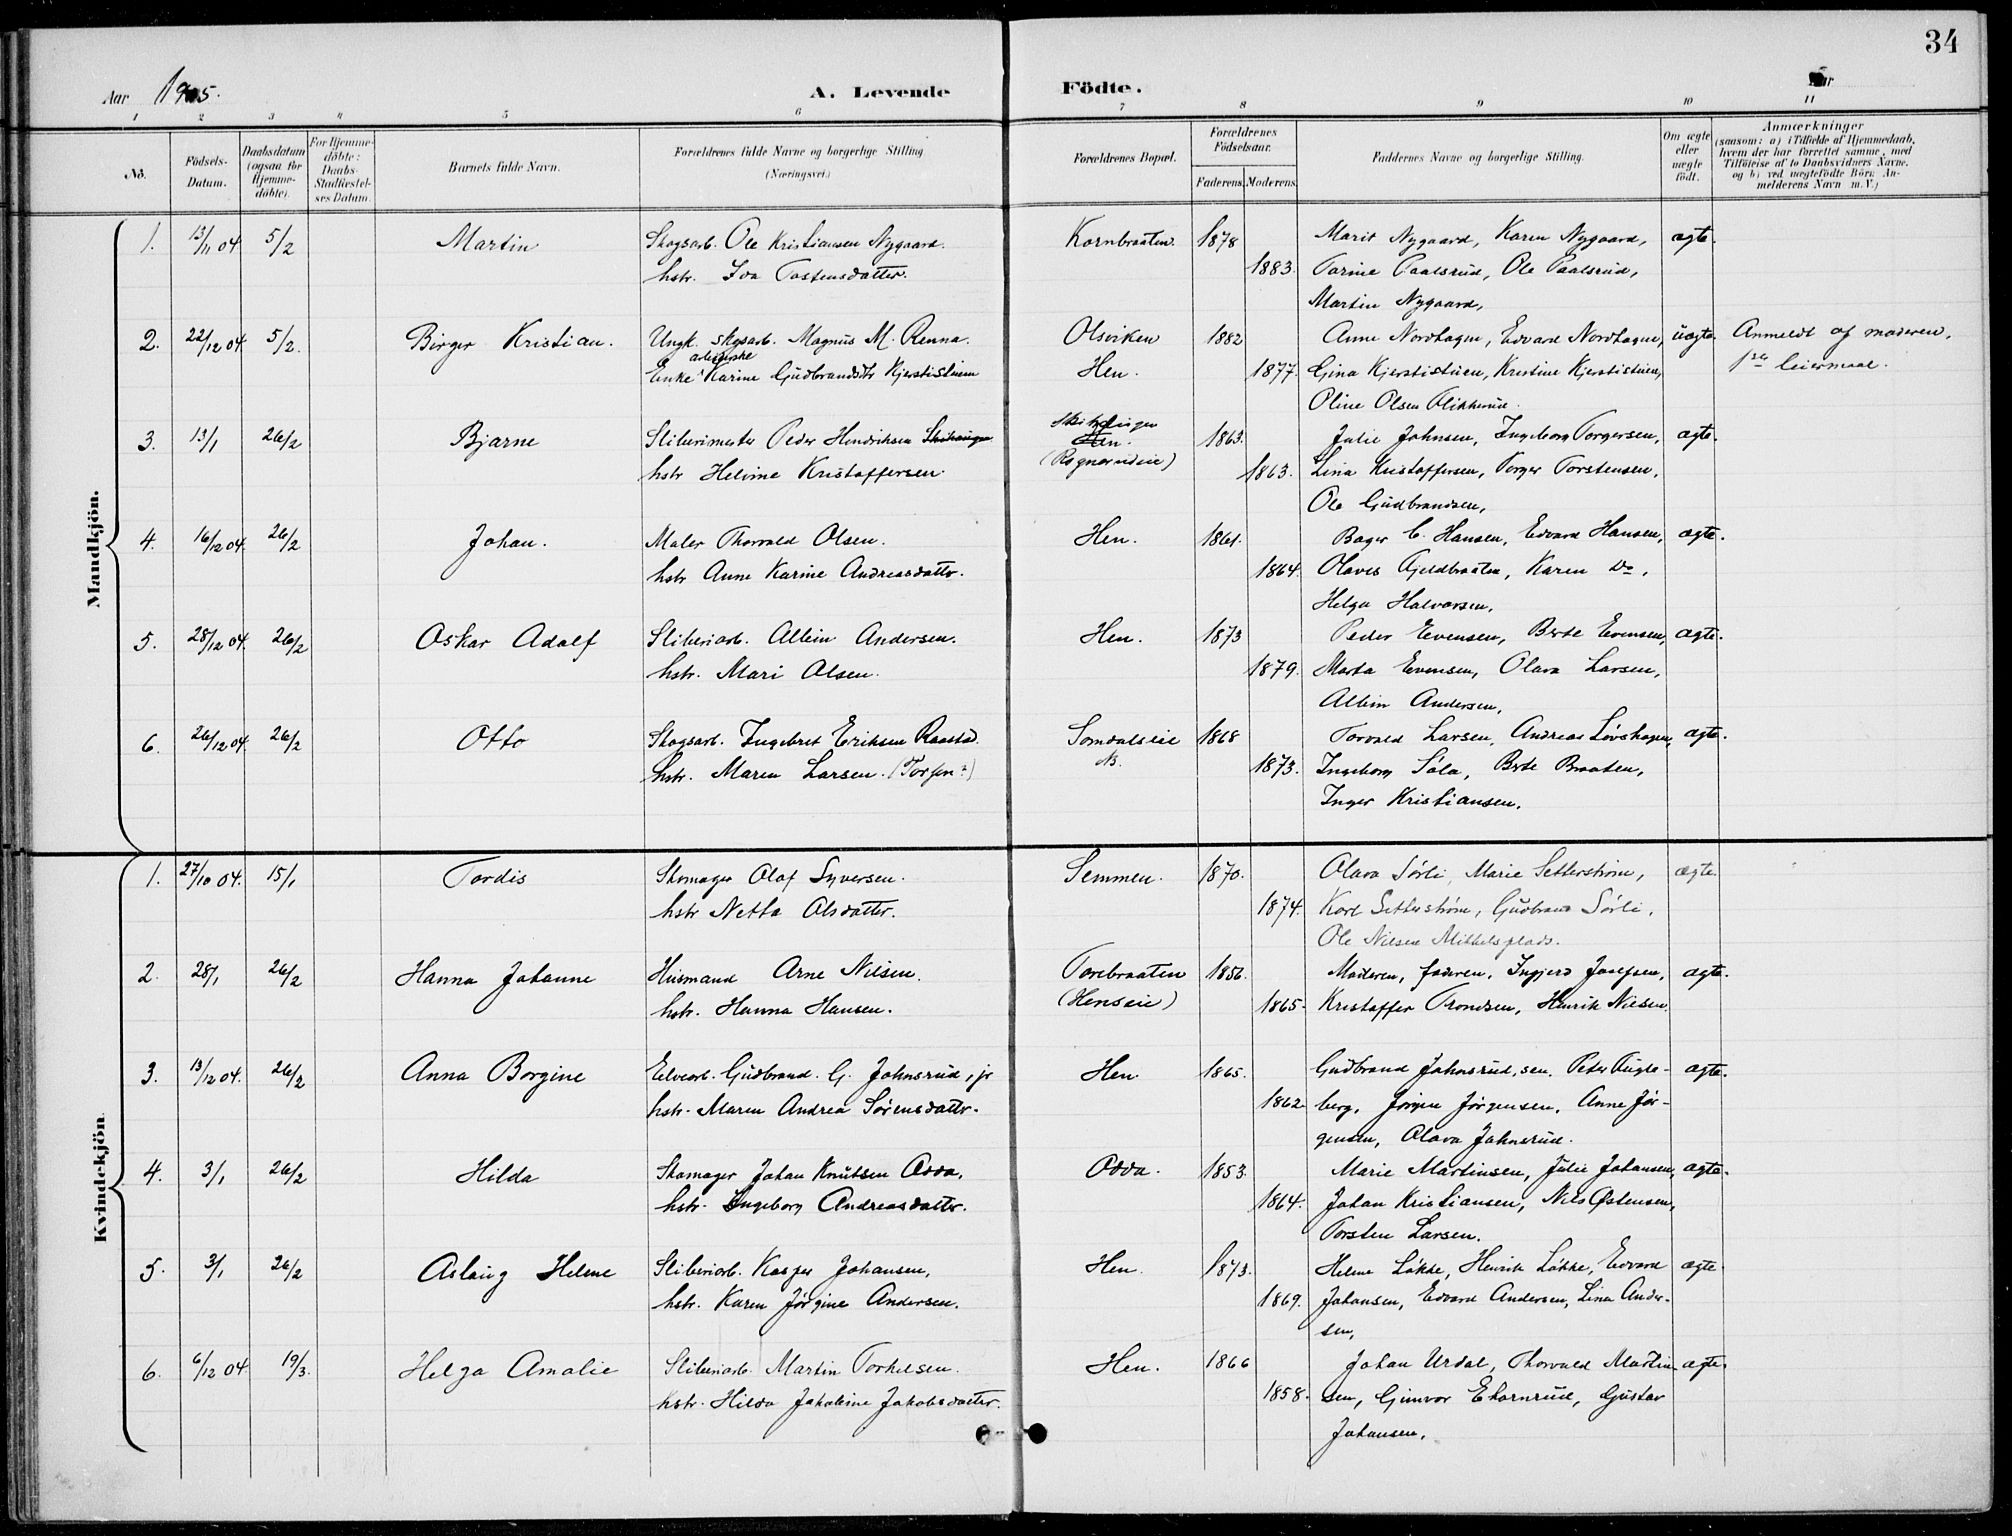 34
Aar 1905.
A. Levende Födte.
Aar
1 2 3 4 5 6 7 8 9 10 11
No.
Födsels-Datum.
Daabsdatum (ogsaa for Hjemmedöbte).
For Hjemmedöbte: Daabs-Stadfæstelses Datum.
Barnets fulde Navn.
Forældrenes fulde Navne og borgerlige Stilling. (Næringsvei.)
Forældrenes Bopæl.
Forældrenes Födselsaar.
Faderens. Moderens.
Faddernes Navne og borgerlige Stilling.
Om ægte eller uægte födt.
Anmærkninger
(saasom: a) i Tilfælde af Hjemmedaab, hvem der har forrettet samme, med Tilföielse af to Daabsvidners Navne, og b) ved uægtefödte Börn Anmelderens Navn m. V.)
Mandkjön.
1. 13/11 04 5/2 Martin Skogsarb. Ole Kristiansen Nygaard. Kornbraaten. 1878 Marit Nygaard, Karen Nygaard, ægte.
hstr. Ida Tostensdatter. 1883. Torine Paalsrud, Ole Paalsrud,
Martin Nygaard,
2. 22/12 04 5/2. Birger Kristian. Ungk. skogsarb. Magnus M. Renna. Olsviken 1882 Anne Nordhagen, Edvard Nordhagen, uægte. Anmeldt af moderen.
Enke arbeiderske Karine Gudbrandsdtr Kjerstistuen Hen. 1877. Gina Kjerstistuen, Kristine Kjerstistuen, 1ste leiermaal.
Oline Olsen Flikkerud.
3. 13/1 26/2 Bjarne Sliberimester Peder Hendriksen Hen. 1863. Julie Johnsen, Ingeborg Torgersen, ægte.
hstr Helime Kristoffersen. (Rognerudeie) 1863. Lina Kristoffersen, Torger Torstensen,
Ole Gudbrandsen,
4. 16/12 04 26/2 Johan. Maler Thorvald Olsen. Hen. 1861. Bager C. Hansen, Edvard Hansen, ægte.
hstr Anne Karine Andreasdattr. 1864. Olaves Gjeldbraaten, Karen Do,
Helga Halvorsen.
5. 28/12 04. 26/2 Oskar Adolf Sliberiarb. Albin Andersen. Hen. 1873 Peder Evensen, Berte Evensen, ægte.
hstr. Mari Olsen. 1879. Marta Evensen, Olava Larsen,
Albin Andersen,
6. 26/12 04. 26/2 Otto Skogsarb. Ingebret Eriksen Raastad. Somdalseie 1868 Torvald Larsen, Andreas Løvshagen, ægte.
hstr. Maren Larsen. N. 1873. Ingeborg Søla, Berte Braaten,
Inger Kristiansen.
Kvindekjön
1. 27/10 04. 15/1 Tordis Skomager Olaf Syversen. Semmen. 1870. Olava Sørli, Marie Setterstrøm, ægte.
hstr Netta Olsdatter. 1874. Karl Setterstrøm, Gudbrand Sørli,
Ole Nilsen Mikkelsplads.
2. 28/1 26/2 Hanna Johanne Husmand Arne Nilsen. Torebraaten 1856. Moderen, faderen, Ingjerd Josefsen, ægte.
hstr. Hanna Hansen. (Henseie) 1865. Kristoffer Trondsen, Henrik Nilsen.
3. 13/12 04. 26/2 Anna Borgine Elvearb. Gudbrand G. Johnsrud, jr Hen 1865. Gudbrand Johnsrud, sen. Peter Fugle- ægte.
hstr. Maren Andrea Sørensdattr. 1862 berg, Jørgen Jørgensen, Anne Jør-
gensen, Olava Johnsrud.
4. 3/1 26/2 Hilda Skomager Johan Knutsen Odda, Odda. 1853. Marie Martinsen, Julie Johansen, ægte.
hstr. Ingeborg Andreasdattr. 1864. Johan Kristiansen, Nils Østensen,
Torsten Larsen.
5. 3/1 26/2 Aslaug Helene Sliberiarb. Kasper Johansen, Hen. 1873. Helene Løkke, Henrik Løkke, Edvard ægte.
hstr. Karen Jørgine Andersen. 1869. Johansen, Edvard Andersen, Lina Ander-
sen,
6. 6/12 04 19/3. Helga Amalie Sliberiarb. Martin Torkelsen. Hen. 1866 Johan Urdal, Thorvald Martin- ægte.
hstr. Hilda Jakobine Jakobsdatter. 1858. sen, Gunvor Ekornrud, Gustav
Johansen,